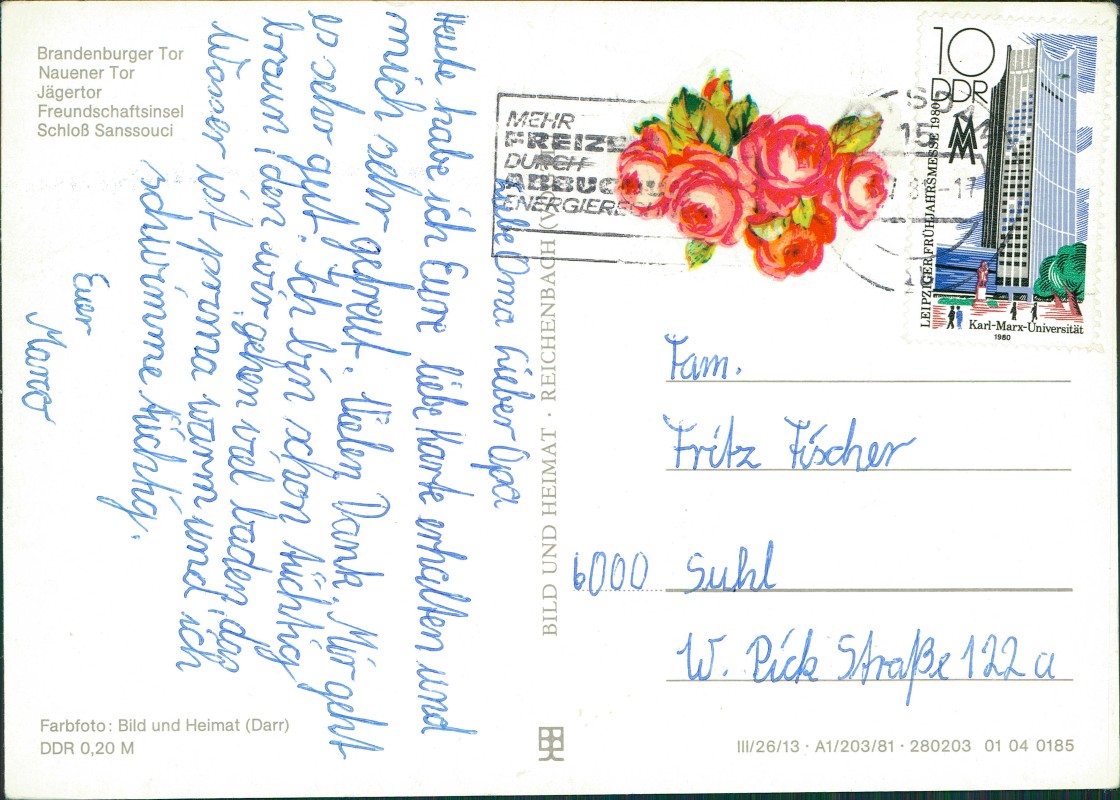 Brandenburger Tor
Nauener Tor
Jägertor
Freundschaftsinsel
Schloß Sanssouci
Liebe Oma Lieber Opa
Heute habe ich Eure liebe Karte erhalten und
mich sehr gefreut. Vielen Dank. Mir geht
es sehr gut. Ich bin schon tüchtig
braun, den wir gehen viel baden, das
Wasser ist prima warm und ich
schwimme tüchtig.
Euer
Marco
Farbfoto: Bild und Heimat (Darr)
DDR 0,20 M
BILD UND HEIMAT · REICHENBACH (V
MEHR
FREIZE
DURCH
ABBUCHU
ENERGIEREC
10
DDR
MM
LEIPZIGER FRÜHJAHRSMESSE 1980
Karl-Marx-Universität
1980
Fam.
Fritz Fischer
6000 Suhl
W. Pick Straße 122 a
III/26/13 · A1/203/81 · 280203 01 04 0185